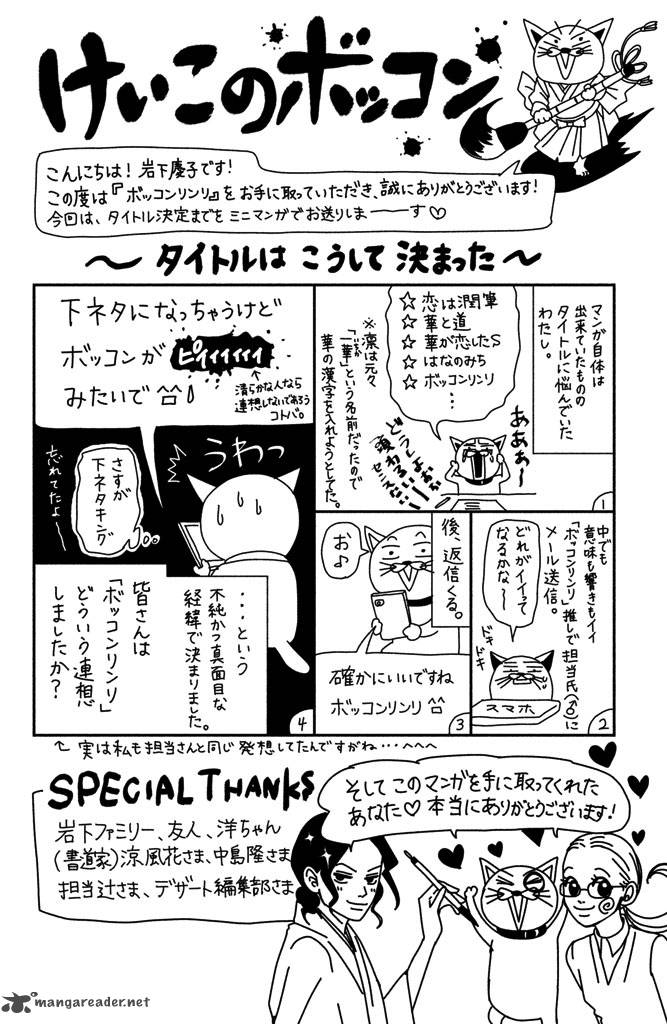 けいこのボッコン
こんにちは！岩下慶子です！
この度は『ボッコンリンリ』をお手に取っていただき、誠にありがとうございます！
今回は、タイトル決定までをミニマンガでお送りしまーーす♡
～タイトルは こうして 決まった～
マンガ自体は
出来ていたものの
タイトルに悩んでいた
わたし。
☆恋は潤筆
☆華と道
☆華が恋したS
☆はなのみち
☆ボッコンリンリ
…
※凛は元々
「一華」という名前だったので
華の漢字を入れようとしてた。
あぁぁ～
どうしよぉぉ
頭わるい…
センスない…
1
中でも
意味も響きもイイ
「ボッコンリンリ」推しで担当氏(♂)に
メール送信。
どれがイイって
なるかな～
ドキ
ドキ
スマホ
2
後、返信くる。
お♪
確かにいいですね
ボッコンリンリ ^^
3
下ネタになっちゃうけど
ボッコンが ピィィィィィィ
みたいで ^^♪
清らかな人なら
連想しないであろう
コトバ。
うわっ
さすが
下ネタキング
忘れてたよ～
…という
不純かつ真面目な
経緯で決まりました。
皆さんは
「ボッコンリンリ」
どういう連想
しましたか？
4
実は私も担当さんと同じ発想してたんですがね…へへへ
SPECIAL THANKS
岩下ファミリー、友人、洋ちゃん
(書道家)涼風花さま、中島隆さま
担当辻さま、デザート編集部さま
そして このマンガを手に取ってくれた
あなた♡本当にありがとうございます！
mangareader.net